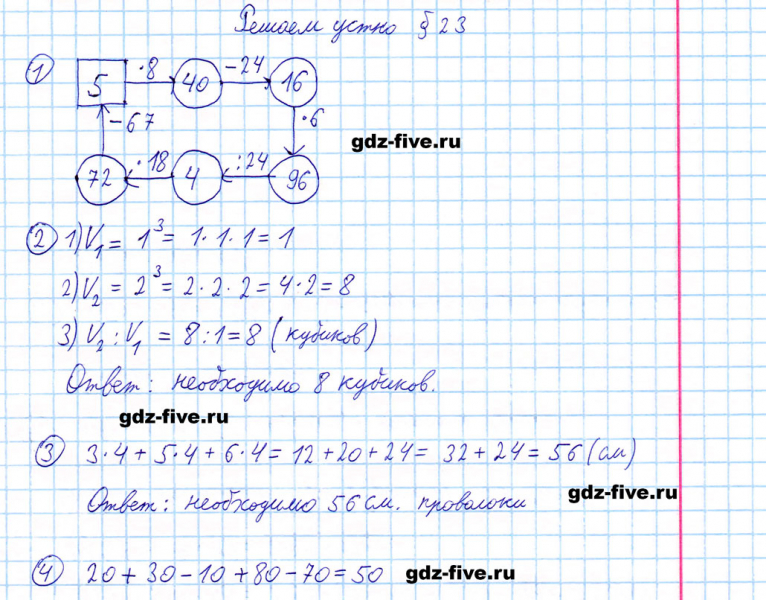 Решаем устно § 23
1 5 ·8 40 -24 16
-67 ·6
gdz-five.ru
72 ·18 4 :24 96
2 1) V₁ = 1³ = 1·1·1 = 1
2) V₂ = 2³ = 2·2·2 = 4·2 = 8
3) V₂ : V₁ = 8 : 1 = 8 (кубиков)
Ответ: необходимо 8 кубиков.
gdz-five.ru
3 3·4 + 5·4 + 6·4 = 12 + 20 + 24 = 32 + 24 = 56 (см)
Ответ: необходимо 56 см. проволоки
gdz-five.ru
4 20 + 30 - 10 + 80 - 70 = 50
gdz-five.ru